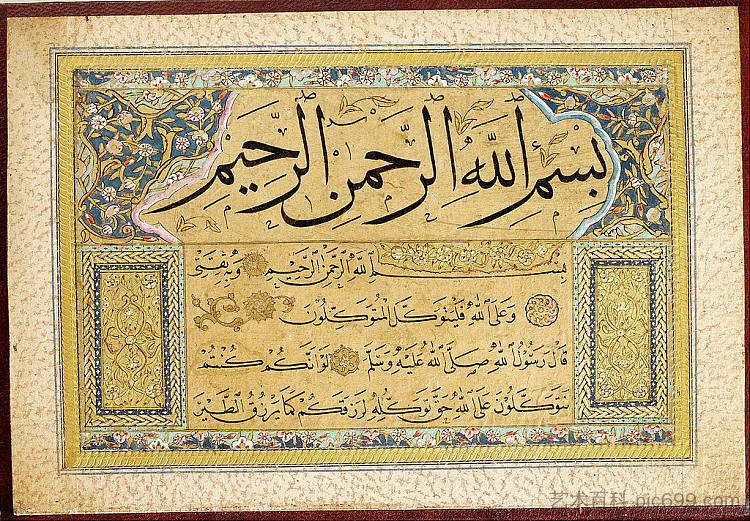 بِسْمِ اللهِ الرَّحْمٰنِ الرَّحِيمِ
بِسْمِ اللهِ الرَّحْمٰنِ الرَّحِيمِ وَبِهِ ثِقَتِي
وَعَلَى اللهِ فَلْيَتَوَكَّلِ الْمُتَوَكِّلُونَ
قَالَ رَسُولُ اللهِ صَلَّى اللهُ عَلَيْهِ وَسَلَّمَ لَوْ أَنَّكُمْ كُنْتُمْ
تَتَوَكَّلُونَ عَلَى اللهِ حَقَّ تَوَكُّلِهِ لَرَزَقَكُمْ كَمَا يَرْزُقُ الطَّيْرَ
艺术百科 pic699.com